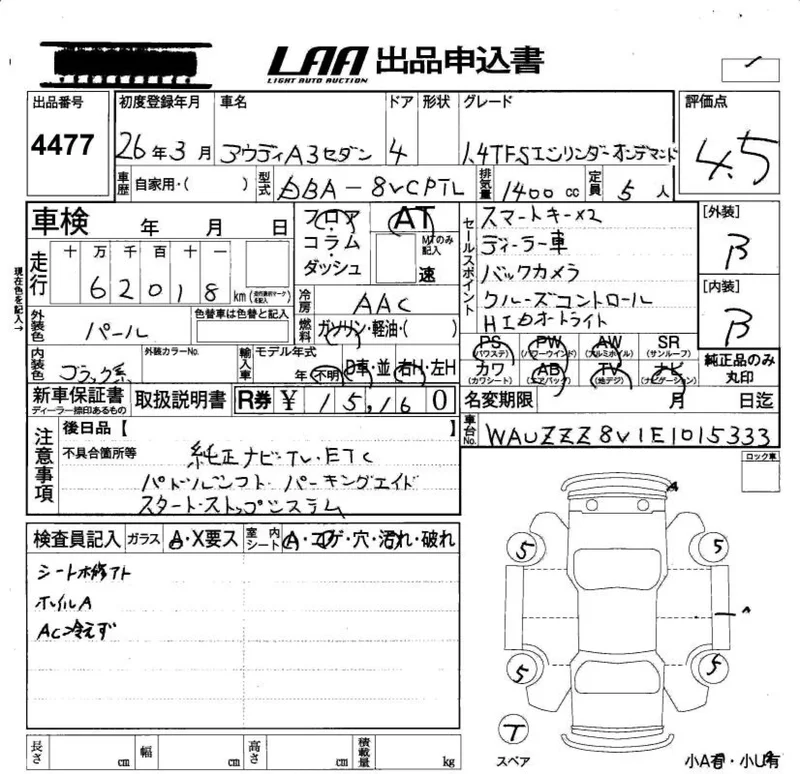 LAA 出品申込書
LIGHT AUTO AUCTION
出品番号 初度登録年月 車名 ドア 形状 グレード 評価点
4477 26年3月 アウディA3セダン 4 1.4TFSIシリンダーオンデマンド 4.5
車歴 自家用・( ) 型式 DBA-8VCPTL 排気量 1400cc 定員 5人
車検 年 月 日 フロア・コラム・ダッシュ AT MTのみ記入 速
セールスポイント
スマートキー×2
ディーラー車
バックカメラ
クルーズコントロール
HIDオートライト
[外装] B
[内装] B
現在色を記入→
走行 十 万 千 百 十 一
62018 km
冷房 AAC
燃料 ガソリン・軽油・( )
外装色 パール 色替車は色替と記入
内装色 ブラック系 外装カラーNo. 輸入車 モデル年式 年 不明 D車・並 右H・左H
PS (パワステ) PW (パワーウインド) AW (アルミホイル) SR (サンルーフ)
カワ (カワシート) AB (エアバッグ) TV (地デジ) ナビ (ナビゲーション)
純正品のみ丸印
新車保証書 ディーラー捺印あるもの 取扱説明書 R券 ¥15,160 名変期限 月 日迄
車台No. WAUZZZ8V1E1015333
注意事項 後日品【 】
不具合箇所等 純正ナビ・TV・ETC
パドルシフト・パーキングエイド
スタート・ストップシステム
ロック車
検査員記入 ガラス A・X要ス 室内シート A・コゲ・穴・汚れ・破れ
シート補修アト
ホイルA
AC冷えず
A
5 5
A
5 5
T
スペア
小A有・小U有
長さ cm 幅 cm 高さ cm 積載量 kg